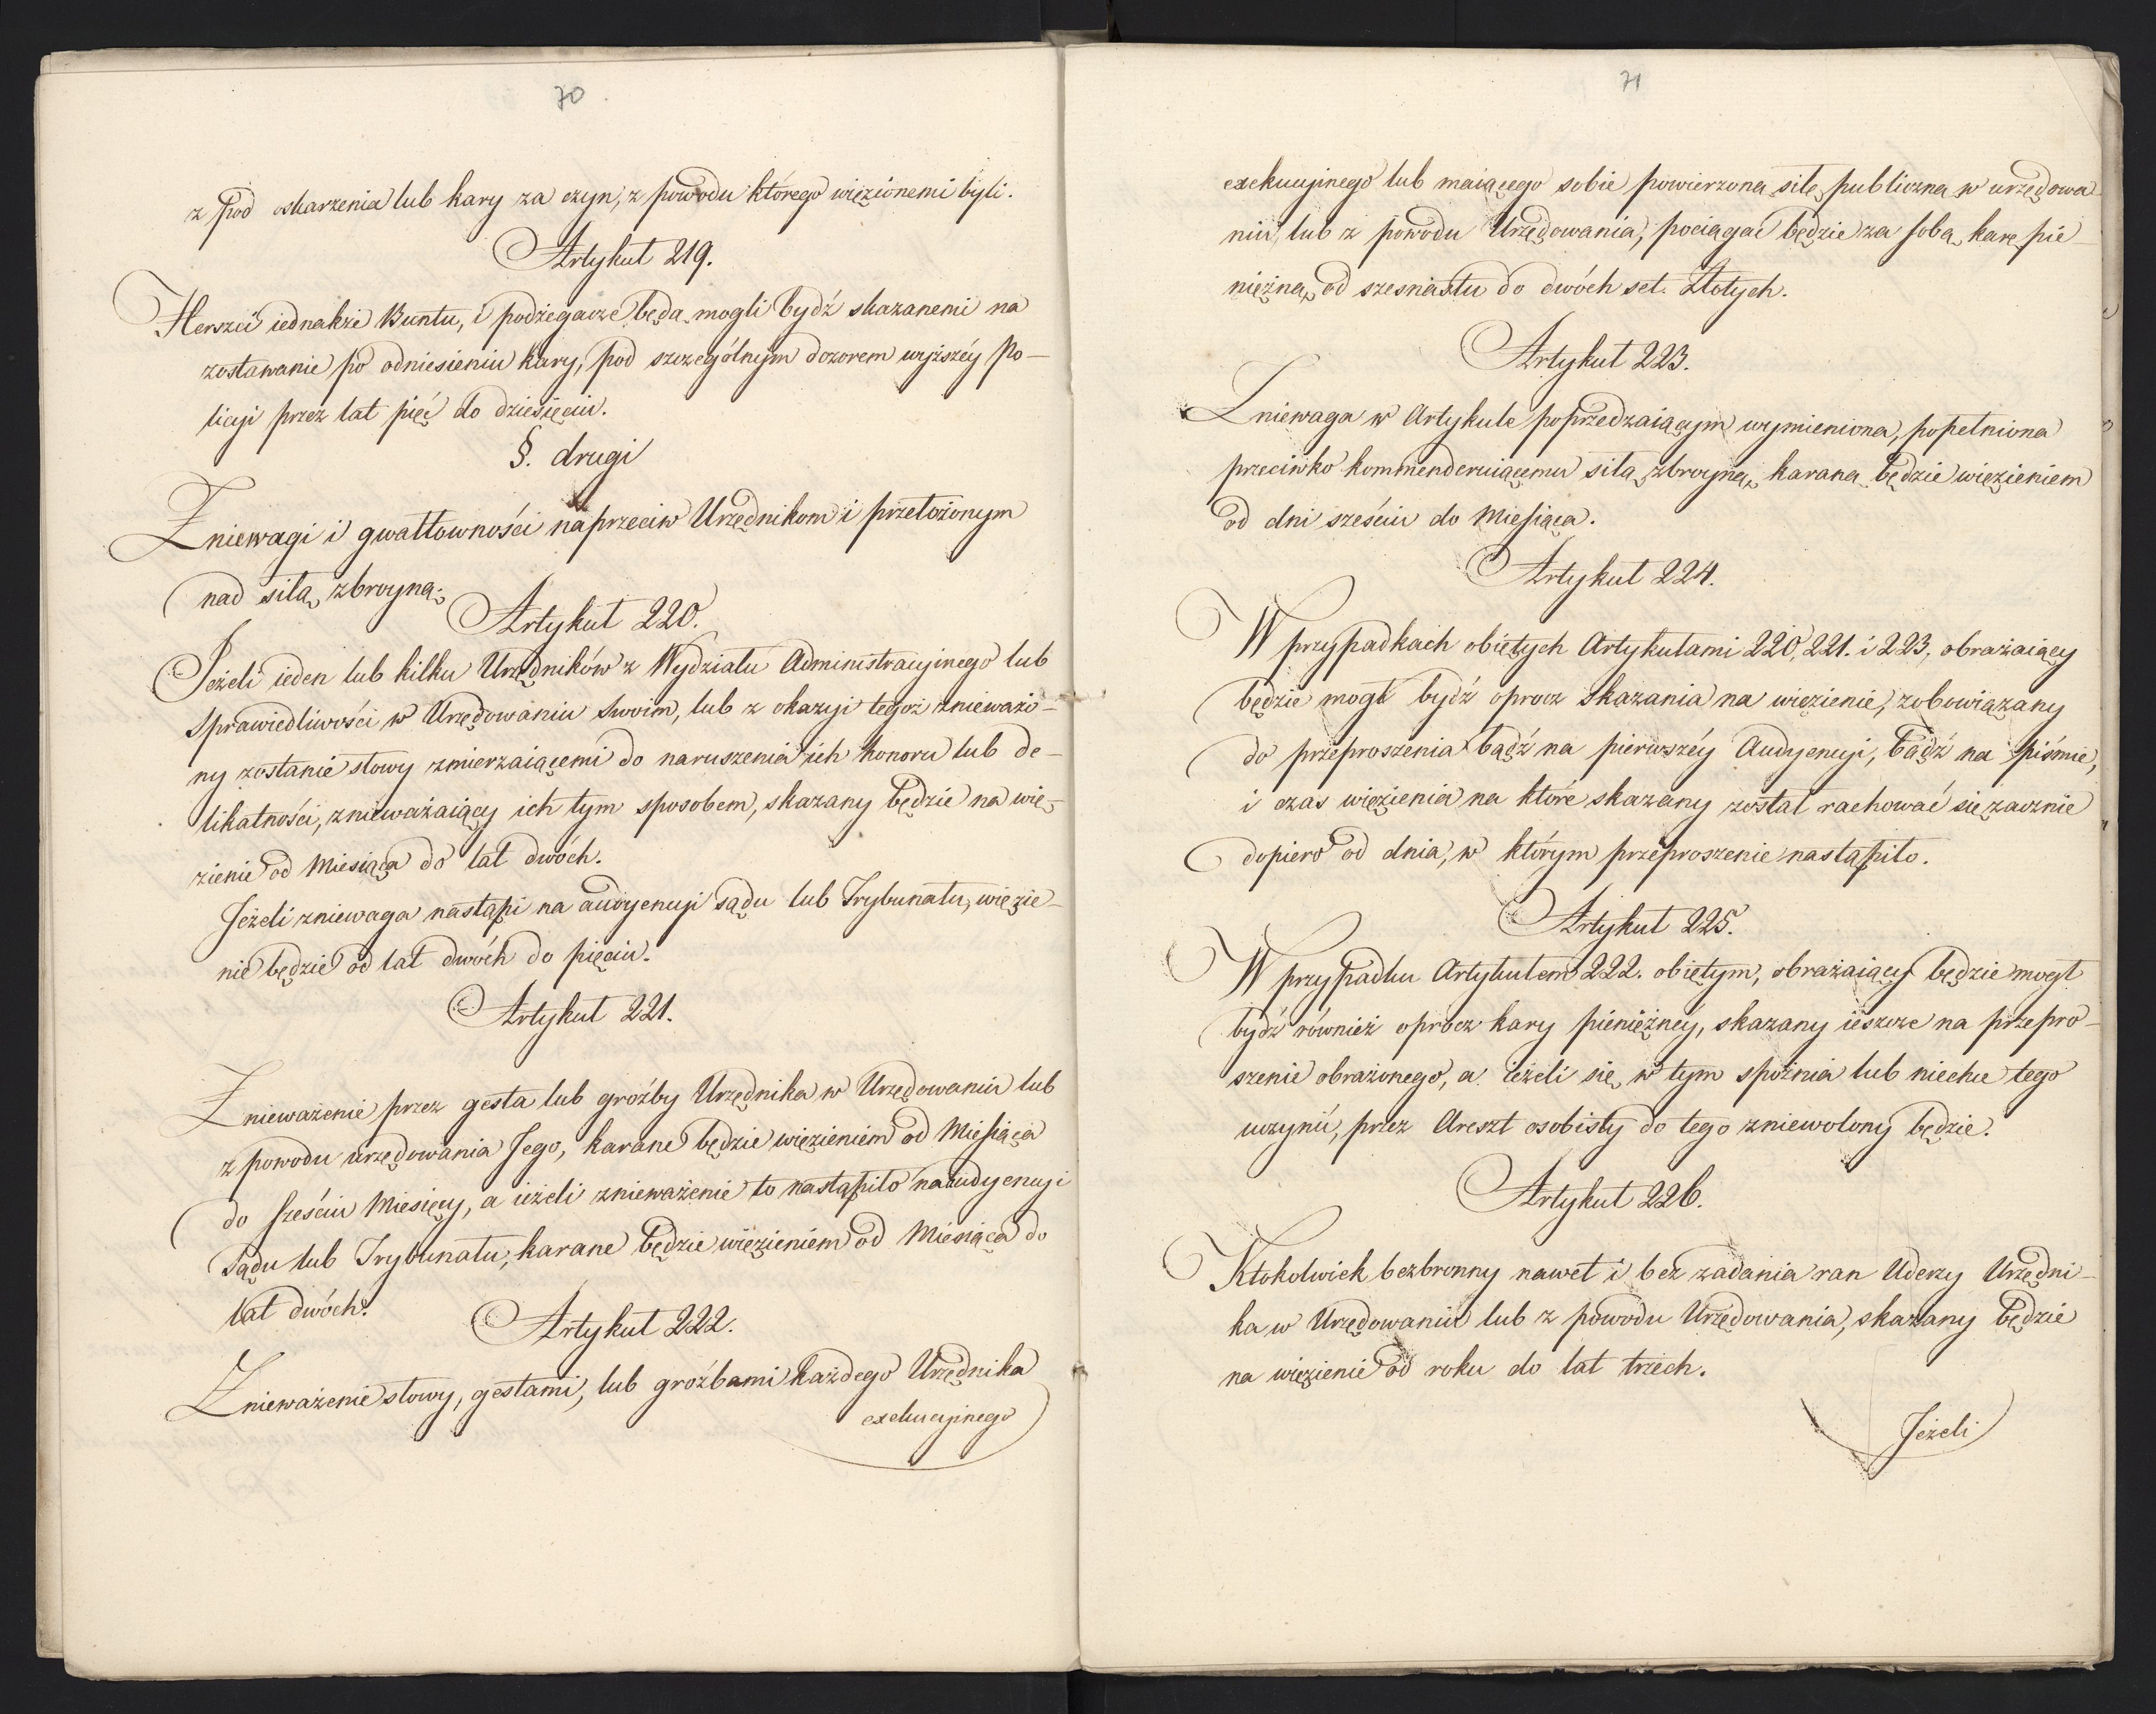 70
z pod oskarzenia lub kary za czyn, z powodu którego więzionemi byli.
Artykuł 219.
Herszci iednakże Buntu, i podżegacze będą mogli bydź skazanemi na
zostawanie po odniesieniu kary, pod szczególnym dozorem wyższéy Po-
licyi przez lat pięć do dziesięciu.
§. drugi
Zniewagi i gwałtowności naprzeciw Urzędnikom i przełożonym
nad siłą zbroyną.
Artykuł 220.
Jeżeli ieden lub kilku Urzędników z Wydziału Administracyinego lub
Sprawiedliwości w Urzędowaniu swoim, lub z okazyi tegoż znieważo-
ny zostanie słowy zmierzaiącemi do naruszenia ich honoru lub de-
likatności, znieważaiący ich tym sposobem, skazany będzie na wię-
zienie od Miesiąca do lat dwóch.
Jeżeli zniewaga nastąpi na audyencyi sądu lub Trybunału, więzie-
nie będzie od lat dwóch do pięciu.
Artykuł 221.
Znieważenie przez gesta lub groźby Urzędnika w Urzędowaniu lub
z powodu urzędowania Jego, karane będzie więzieniem od Miesiąca
do sześciu Miesięcy, a ieżeli znieważenie to nastąpiło na audyencyi
Sądu lub Trybunału, karane będzie więzieniem od Miesiąca do
lat dwóch.
Artykuł 222.
Znieważenie słowy, gestami, lub groźbami każdego Urzędnika
exekucyinego
71
exekucyinego lub maiącego sobie powierzoną siłę publiczną w urzędowa-
niu, lub z powodu Urzędowania, pociągać będzie za sobą karę pie-
niężną od szesnastu do dwóch set. Złotych.
Artykuł 223.
Zniewaga w Artykule poprzedzaiącym wymieniona, popełniona
przeciwko kommenderuiącemu siłą zbroyną, karana będzie więzieniem
od dni sześciu do Miesiąca.
Artykuł 224.
W przypadkach obiętych Artykułami 220, 221. i 223, obrażaiący
będzie mogł bydź oprocz skazania na więzienie, zobowiązany
do przeproszenia bądź na pierwszéy Audyencyi, bądź na piśmie,
i czas więzienia na które skazany został rachować się zacznie
dopiero od dnia, w którym przeproszenie nastąpiło.
Artykuł 225.
W przypadku Artykułem 222. obiętym, obrażaiący będzie mogł
bydź również oprocz kary pieniężnéy, skazany ieszcze na przepro-
szenie obrażonego, a ieżeli się w tym spoźnia lub niechce tego
uczynić, przez Areszt osobisty do tego zniewolony będzie.
Artykuł 226.
Ktokolwiek bezbronny nawet i bez zadania ran Uderzy Urzędni-
ka w Urzędowaniu lub z powodu Urzędowania, skazany będzie
na więzienie od roku do lat trzech.
Jeżeli